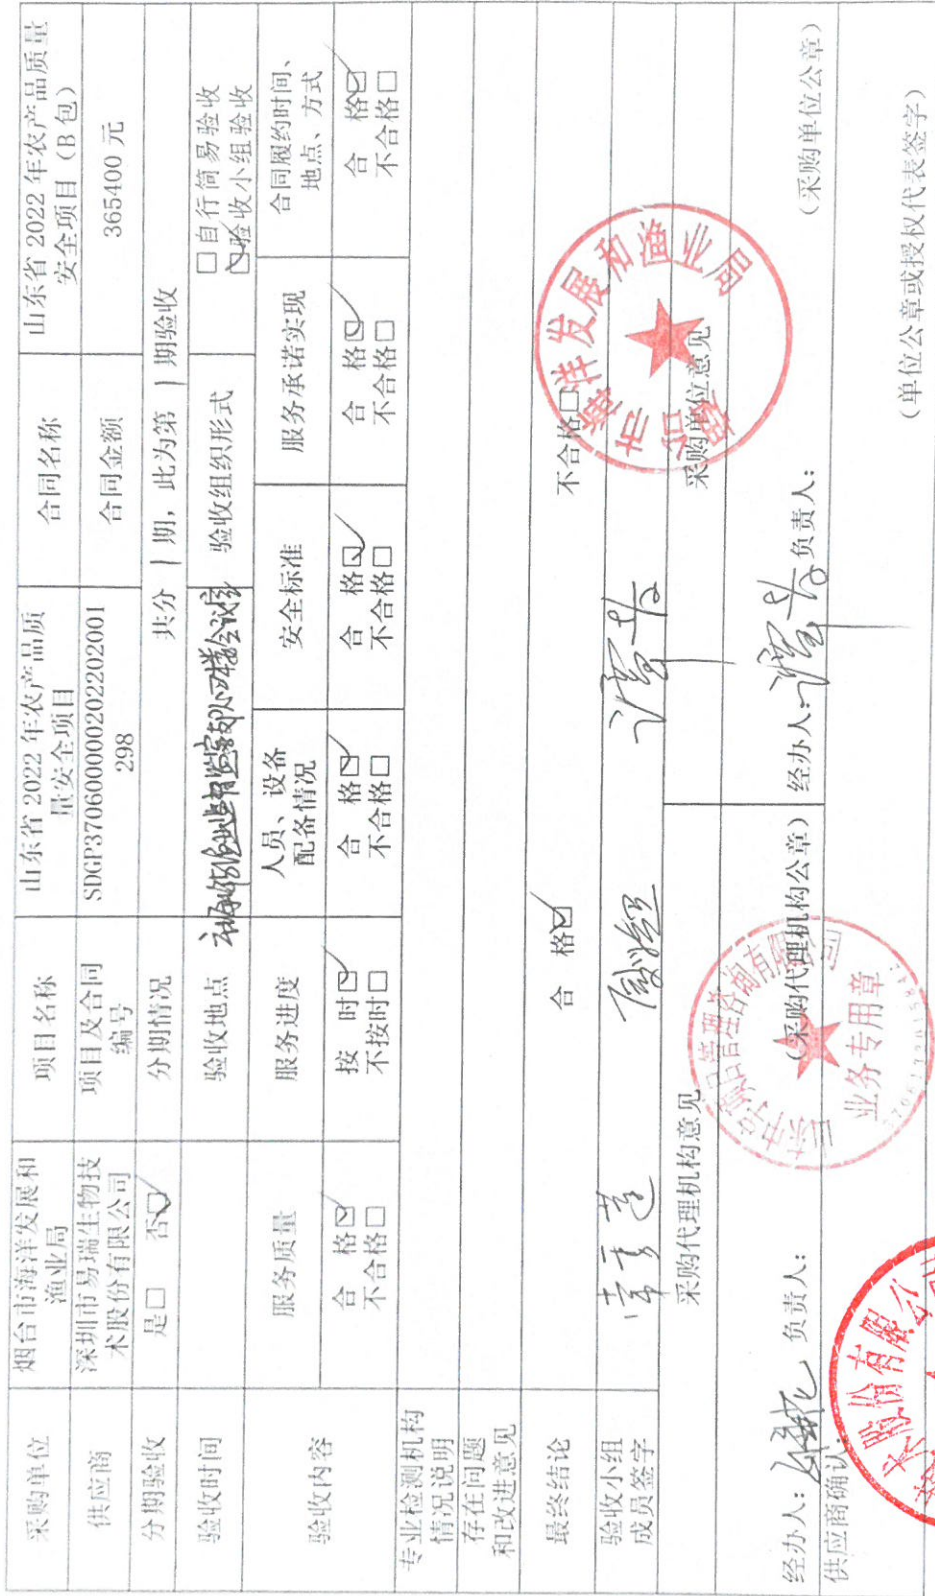 采购单位 烟台市海洋发展和渔业局 项目名称 山东省 2022 年农产品质量安全项目 合同名称 山东省 2022 年农产品质量安全项目（B 包）
供应商 深圳市易瑞生物技术股份有限公司 项目及合同编号 SDGP370600000202202001298 合同金额 365400 元
分期验收 是□ 否☑ 分期情况 共分 1 期，此为第 1 期验收
验收时间 验收地点 验收组织形式 □自行简易验收
☑验收小组验收
验收内容 服务质量 服务进度 人员、设备配备情况 安全标准 服务承诺实现 合同履约时间、地点、方式
合 格☑ 按 时☑ 合 格☑ 合 格☑ 合 格☑ 合 格☑
不合格□ 不按时□ 不合格□ 不合格□ 不合格□ 不合格□
专业检测机构情况说明
存在问题和改进意见
最终结论 合 格☑ 不合格□
验收小组成员签字
采购代理机构意见 采购单位意见
烟台市海洋发展和渔业局
业务专用章
（采购代理机构公章） （采购单位公章）
经办人： 负责人： 经办人： 负责人：
供应商确认：
股份有限公司
（单位公章或授权代表签字）